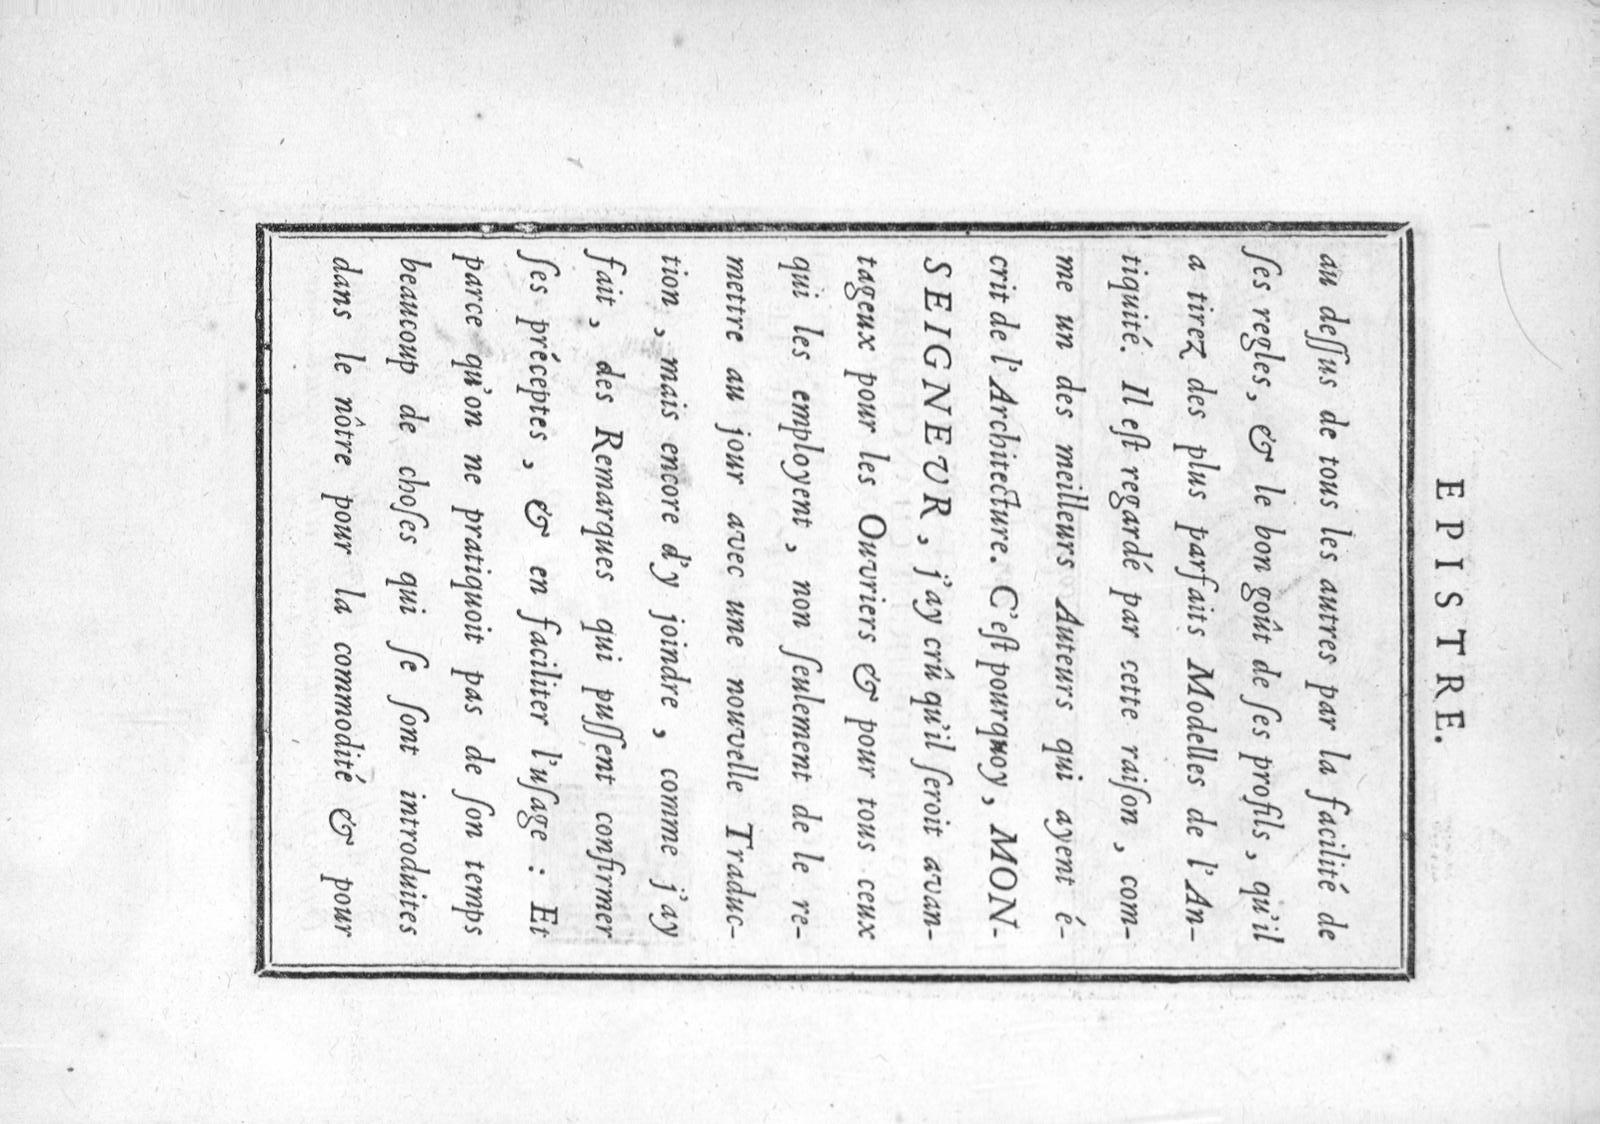 EPISTRE.
au deſſus de tous les autres par la facilité de
ſes regles, & le bon goût de ſes profils, qu'il
a tirez des plus parfaits Modelles de l'An-
tiquité. Il eſt regardé par cette raiſon, com-
me un des meilleurs Auteurs qui ayent é-
crit de l'Architecture. C'eſt pourquoy, MON-
SEIGNEUR, j'ay crû qu'il ſeroit avan-
tageux pour les Ouvriers & pour tous ceux
qui les employent, non ſeulement de le re-
mettre au jour avec une nouvelle Traduc-
tion, mais encore d'y joindre, comme j'ay
fait, des Remarques qui puſſent confirmer
ſes préceptes, & en faciliter l'uſage : Et
parce qu'on ne pratiquoit pas de ſon temps
beaucoup de choſes qui ſe ſont introduites
dans le nôtre pour la commodité & pour